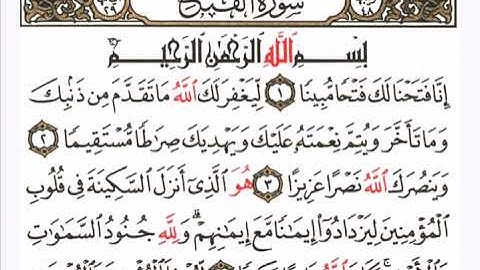 سُورَةُ الفَتْحِ
بِسْمِ اللَّهِ الرَّحْمَٰنِ الرَّحِيمِ
إِنَّا فَتَحْنَا لَكَ فَتْحًا مُّبِينًا ١ لِّيَغْفِرَ لَكَ اللَّهُ مَا تَقَدَّمَ مِن ذَنۢبِكَ
وَمَا تَأَخَّرَ وَيُتِمَّ نِعْمَتَهُ عَلَيْكَ وَيَهْدِيَكَ صِرَٰطًا مُّسْتَقِيمًا ٢
وَيَنصُرَكَ اللَّهُ نَصْرًا عَزِيزًا ٣ هُوَ الَّذِي أَنزَلَ السَّكِينَةَ فِي قُلُوبِ
الْمُؤْمِنِينَ لِيَزْدَادُوٓا إِيمَٰنًا مَّعَ إِيمَٰنِهِمْ ۗ وَلِلَّهِ جُنُودُ السَّمَٰوَٰتِ